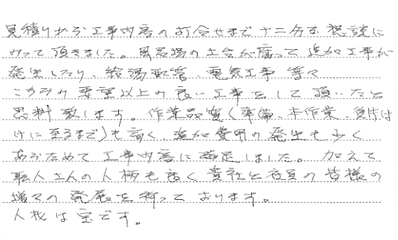 見積りから工事内容の打合せまで十二分な相談に
のって頂きました。風呂場の土台が腐って追加工事が
発生したり、給湯配管、電気工事等々
こちらの希望以上の良い工事をして頂いたと
思料致します。作業品質(準備、本作業、片付
けに至るまで)も高く、追加費用の発生も少く
あらためて工事内容に満足しました。加えて
職人さんの人柄も良く貴社と社員の皆様の
増々の発展を祈っております。
人材は宝です。